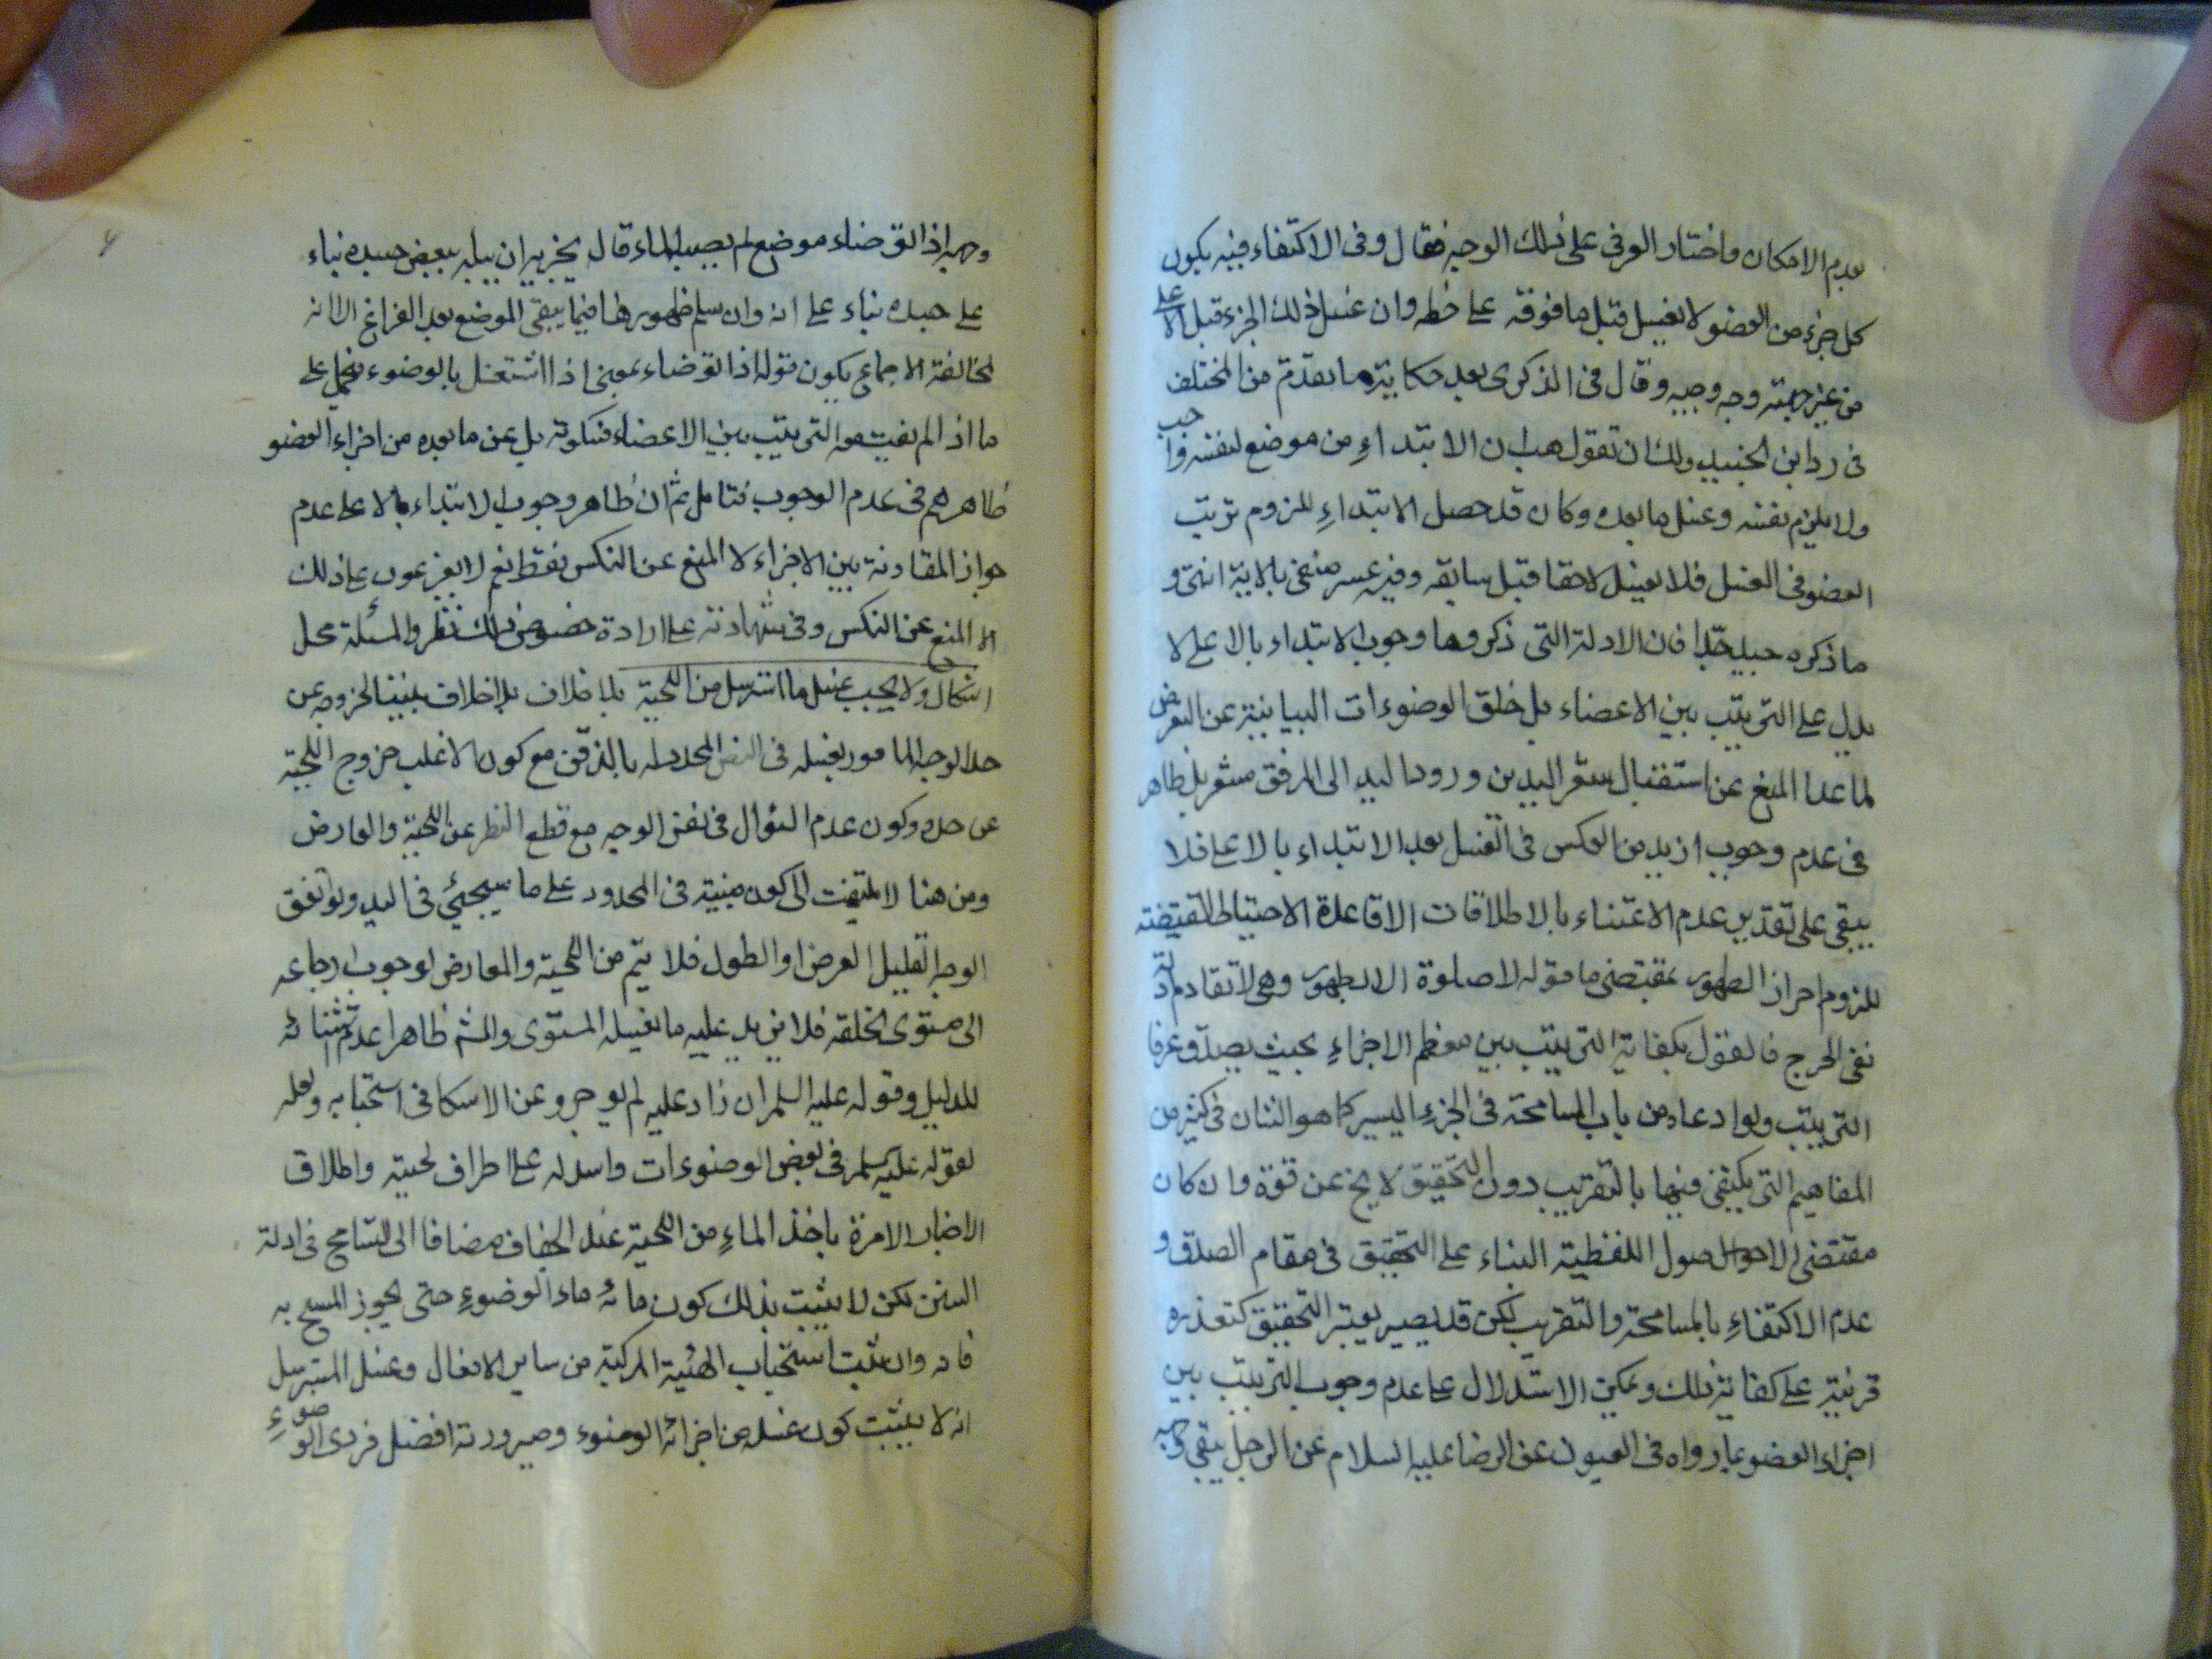 بعدم الامكان واختار العرفى على ذلك الوجه فقال وفى الاكتفاء فيه بكون
كل جزء من العضو لا يغسل قبل ما فوقه على خطه وان غسل ذلك الجزء قبل الاعلى
من غير جهته وجه وجيه وقال فى الذكرى بعد حكاية ما تقدم من المختلف
فى رد ابن الجنيد ولك ان تقول هب ان الابتداء من موضع لنفسه واجب
ولا يلزم نفسه وغسل ما بعده وكان قد حصل الابتداء للزوم ترتيب
العضو فى الغسل فلا يغسل لاحقا قبل سابقه وفيه عسر منفى بالاية انتهى و
ما ذكره جيد جدا فان الادلة التى ذكروها وجوب الابتداء بالاعلى لا
يدل على الترتيب بين الاعضاء بل خلق الوضوءات البيانية عن التعرض
لما عدا المنع عن استقبال شعر اليدين ورود اليد الى المرفق مشعر بل ظاهر
فى عدم وجوب ازيد من العكس فى الغسل بعد الابتداء بالاعلى فلا
يبقى على تقدير عدم الاعتناء بالاطلاقات الا قاعدة الاحتياط المقتضية
للزوم احراز الطهور بمقتضى ما قوله لا صلوة الا بطهور وهى لا تقاوم ادلة
نفى الحرج فالقول بكفاية الترتيب بين معظم الاجزاء بحيث يصدق عرفا
الترتيب ولو ادعاه من باب المسامحة فى الجزء اليسير كما هو الشان فى كثير من
المفاهيم التى يكتفى فيها بالتقريب دون التحقيق لا يخ عن قوة وان كان
مقتضى الاصول اللفظية البناء على التحقيق فى مقام الصدق و
عدم الاكتفاء بالمسامحة والتقريب لكن قد يصير تعسر التحقيق كتعذره
قرينة على كفاية ذلك ويمكن الاستدلال على عدم وجوب الترتيب بين
اجزاء العضو بما رواه فى العيون عن الرضا عليه السلام عن الرجل يبقى من وجهه
وجهه اذا توضاء موضع لم يصبه الماء قال يجزيه ان يبله ببعض جسده بناء
على جسده بناء على انه وان سلم ظهورها فيما يبقى الموضع بعد الفراغ الا انه
لمخالفة الاجماع يكون قوله اذا توضاء بمعنى اذا اشتغل بالوضوء فيحمل على
ما اذا لم يفت معه الترتيب بين الاعضاء فسكوته عن ما بعده من اجزاء العضو
ظاهرهم فى عدم الوجوب فتامل ثم ان ظاهر وجوب الابتداء بالاعلى عدم
جواز المقارنة بين الاجزاء لا المنع عن النكس فقط نعم لا يفرعون على ذلك
الا المنع عن النكس وفى شهادته على ارادة خصوص ذلك نظر والمسئلة محل
اشكال ولا يجب غسل ما استرسل من اللحية بلا خلاف بلا خلاف بيننا لخروجه عن
حد الوجه المامور بغسله فى النص المحدد له بالذقن مع كون الاغلب خروج اللحية
عن حده وكون عدم السؤال فى نفس الوجه مع قطع النظر عن اللحية والعارض
ومن هنا لا يلتفت الى كون منبته فى المحدود على ما سيجئ فى اليد ولو اتفق
الوجه القليل العرض او الطول فلا يتم من اللحية والعارض لوجوب ارجاعه
الى مستوى الخلقة فلا يزيد عليه ما يغسله المستوى والمشهور ظاهرا عدم استثنائه
للدليل وقوله عليه السلم ان زاد عليه لم يوجر وعن الاسكافى استحبابه ولعله
لقوله عليه السلم فى بعض الوضوءات واسدله على اطراف لحيته واطلاق
الاخبار الامرة باخذ الماء من اللحية عند الجفاف مضافا الى التسامح فى ادلة
السنن لكن لا يثبت بذلك كون مائه ماء الوضوء حتى يجوز المسح به
فانه وان ثبت استحباب الهيئة المركبة من ساير الافعال وغسل المسترسل
انه لا يثبت كون غسله من اجزائه الوضوء وصيرورته افضل فردى الوضوء